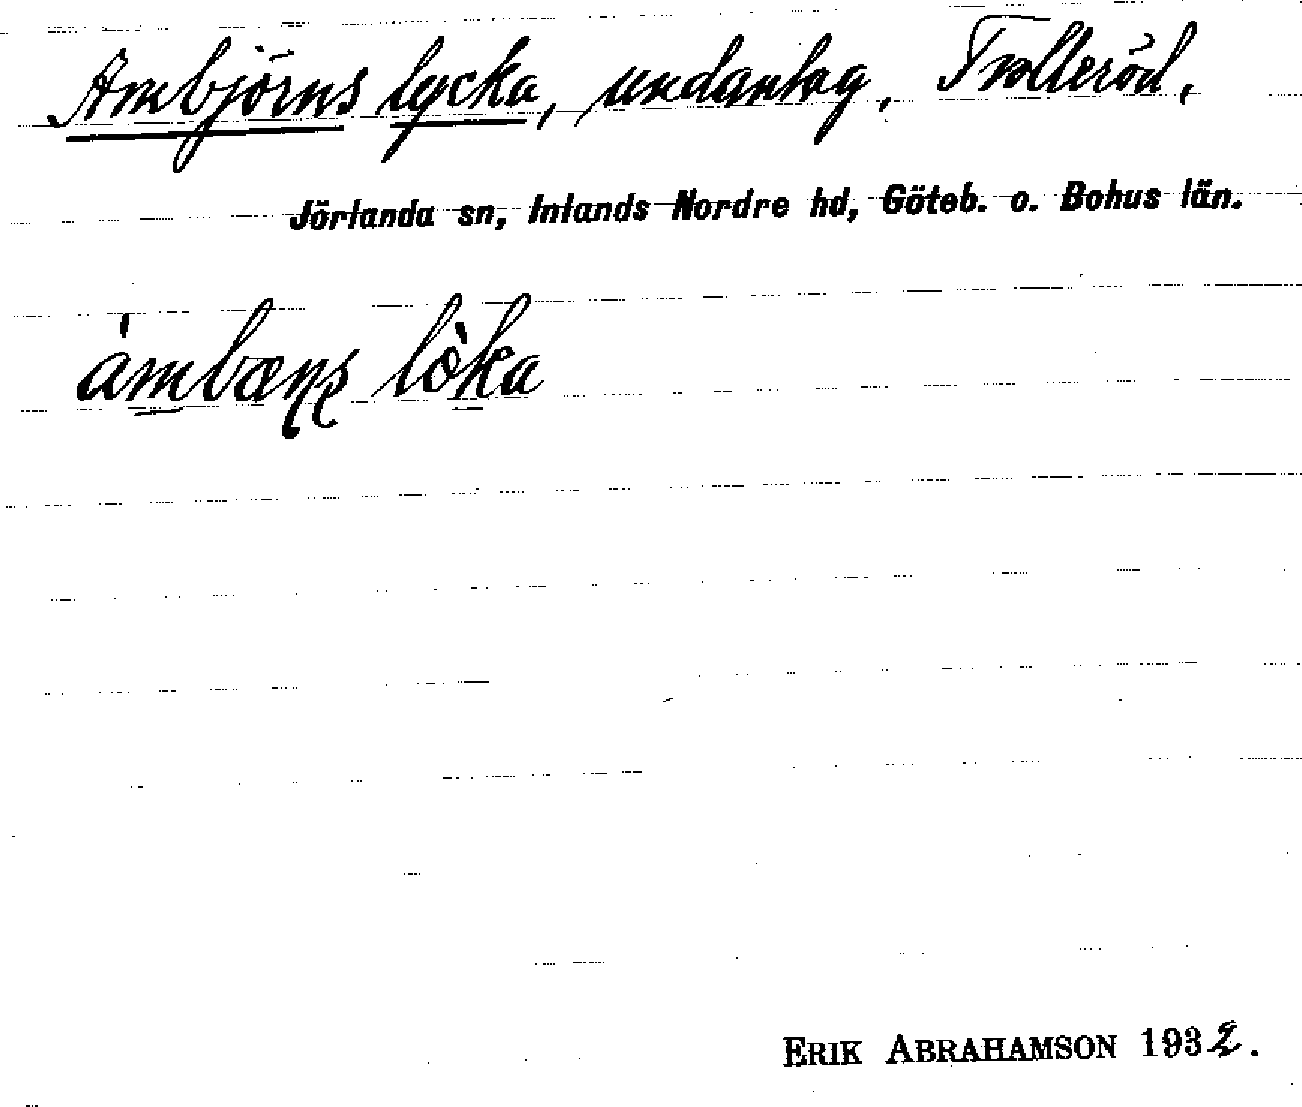 Ambjörns lycka, undantag, Trolleröd,
Jörlanda sn, Inlands Nordre hd, Göteb. o. Bohus län.
ámbæɳʂ lò̀ka
ERIK ABRAHAMSON 1932.